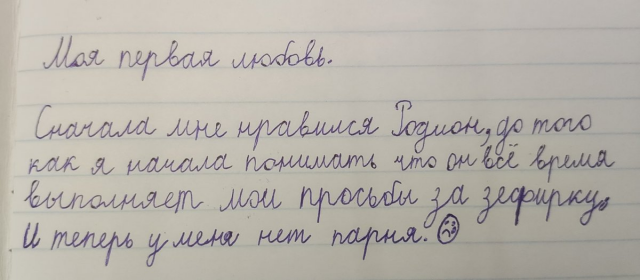 Моя первая любовь.
Сначала мне нравился Родион, до того
как я начала понимать что он всё время
выполняет мои просьбы за зефирку.
И теперь у меня нет парня.